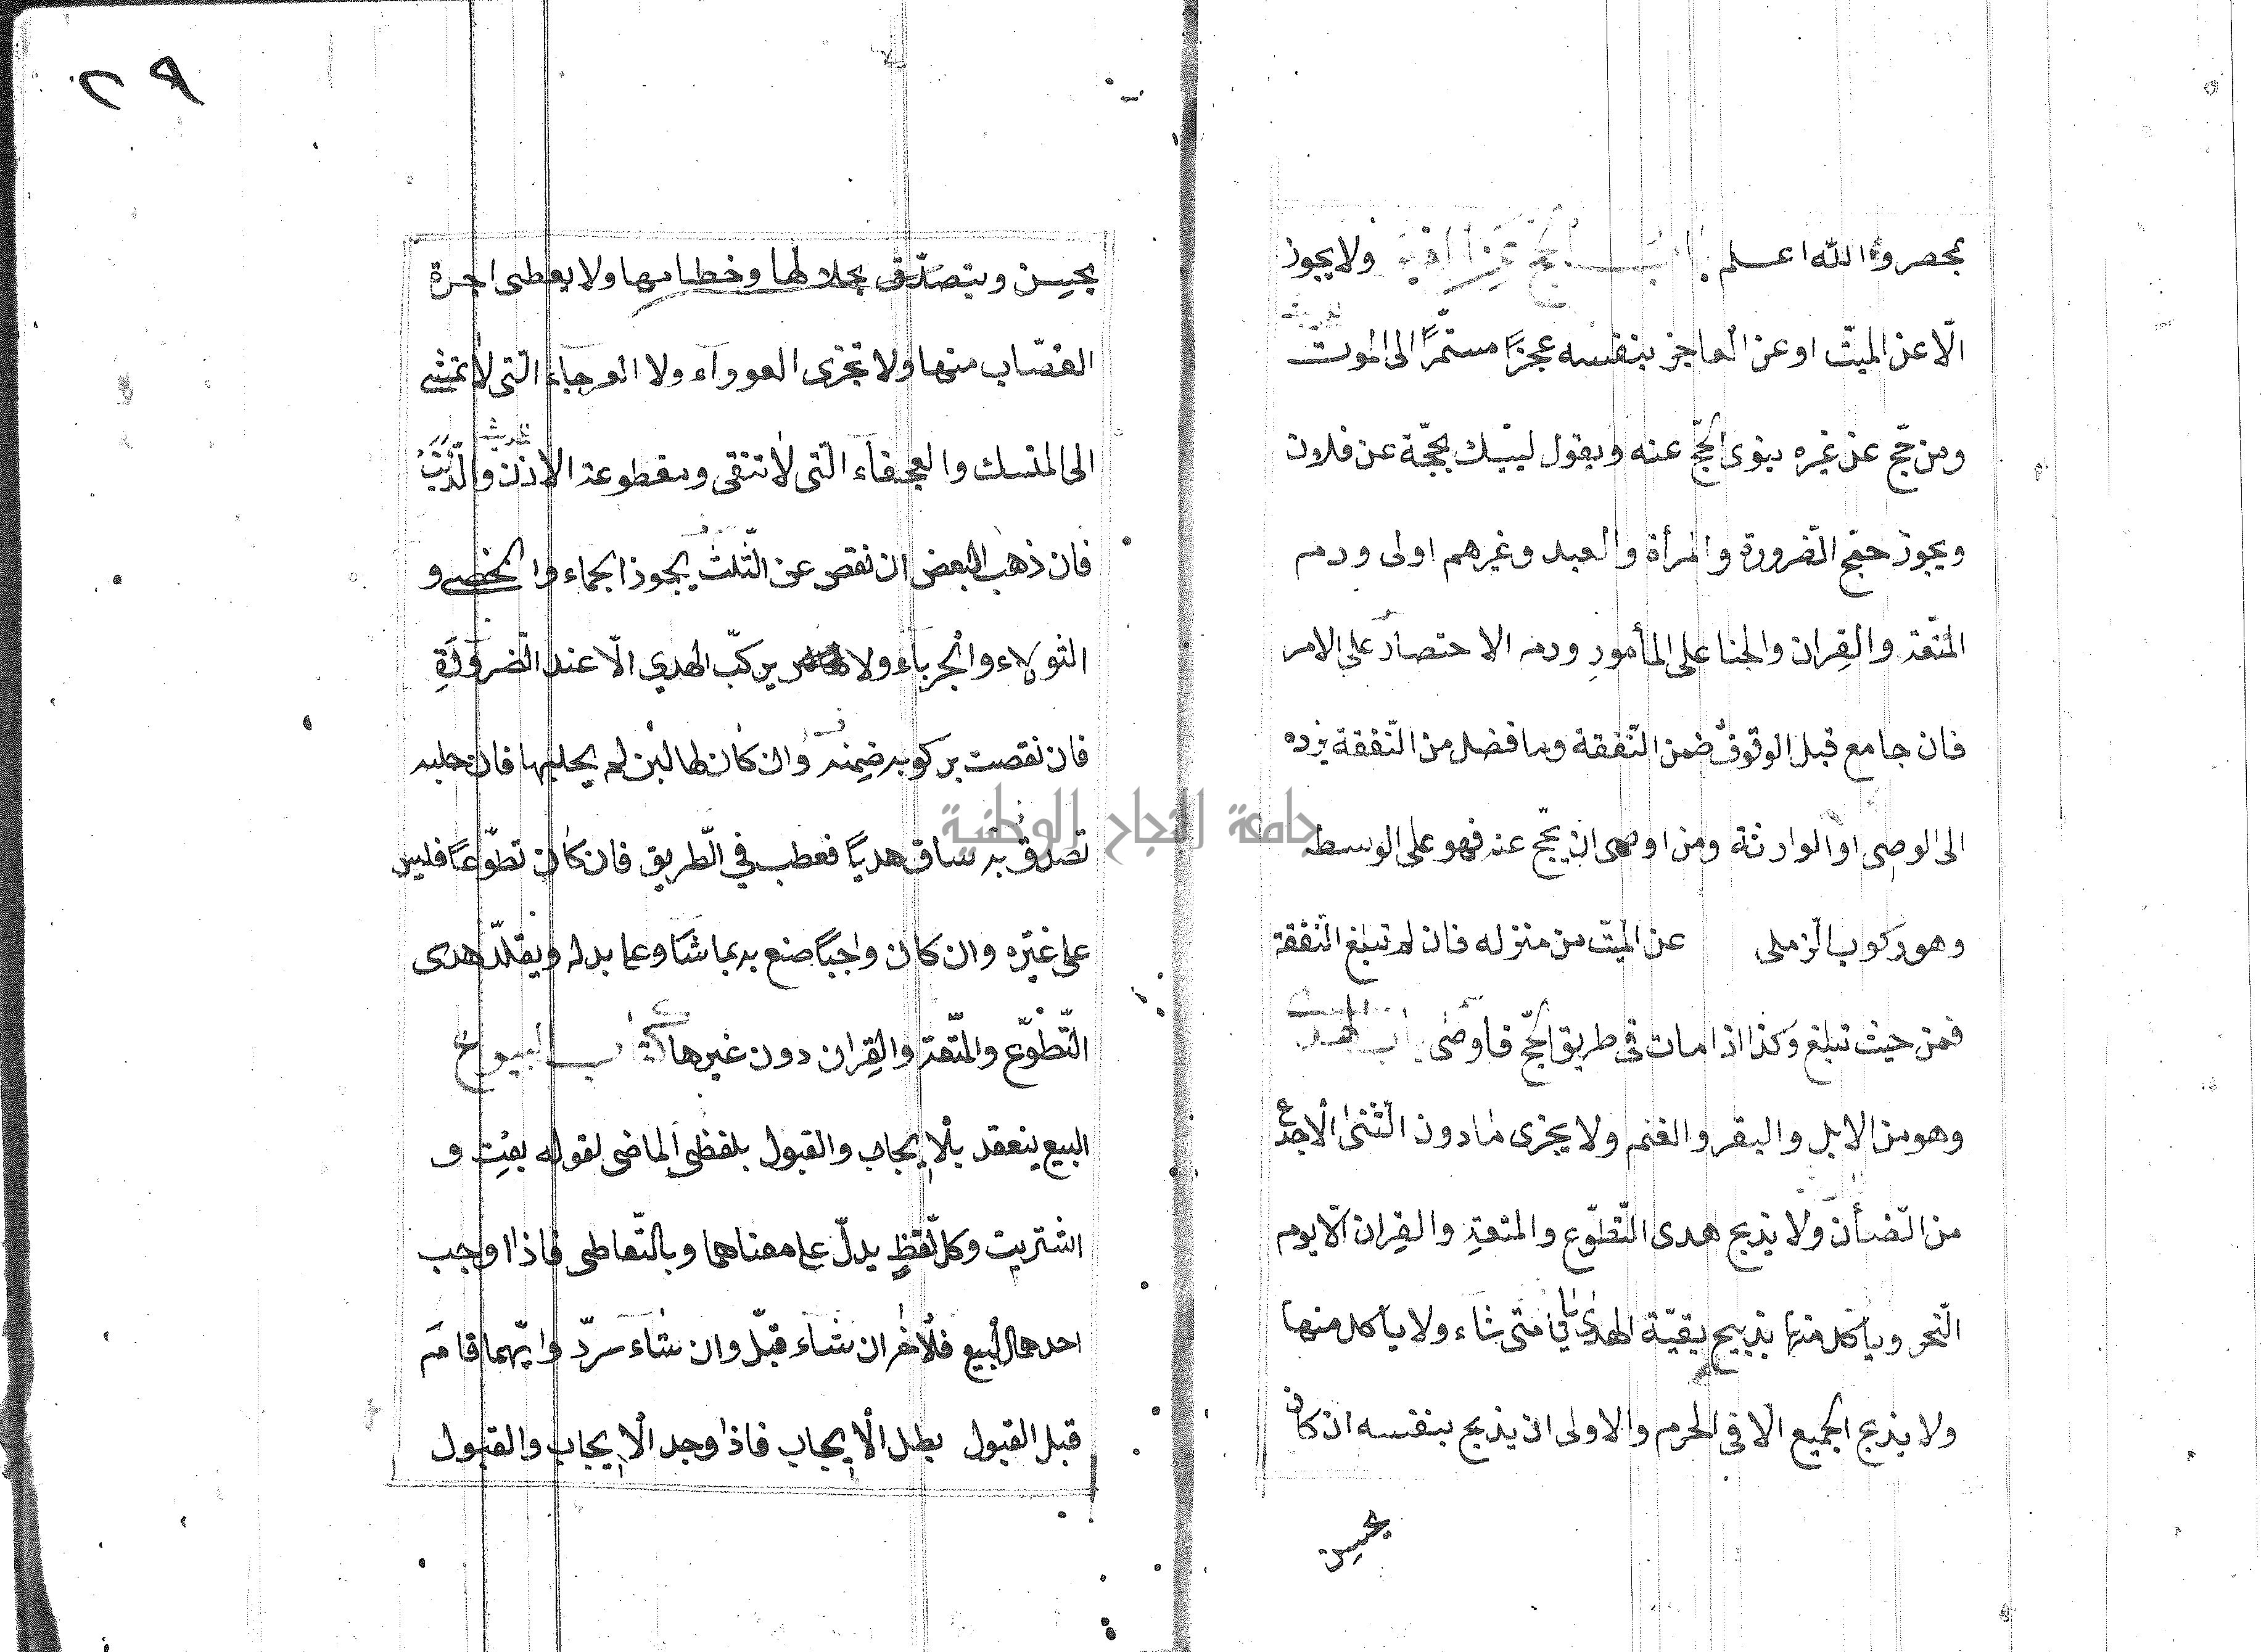 بمحصر والله اعلم باب الحج عن الغير ولا يجوز
الّا عن الميّت او عن العاجز بنفسه عجزًا مستمّرًا الى الموت
ومن حّج عن غيره ينوى الحّج عنه ويقول لبيّك بحجّة عن فلان
ويجوز حجّ الضرورة والمرأة والعبد وغيرهم اولى ودم
المتّعة والقِران والجنا على المأمورِ ودم الاحتصار على الامر
فان جامع قبل الوقوف ضمن النّفقة وما فضل من النّفقة يرده
الى الوصى او الوارثة ومن اوصى ان يحّج عنه فهو على الوسط
وهو ركوب الزملى عن الميّت من منزله فان لم تبلغ النّفقة
فمن حيث تبلغ وكذا اذا مات فى طريق الحّج فاوصى باب الهدى
وهو من الابل والبقر والغنم ولا يجزى مادون الثّنى الّا الجذع
من الضّأن ولا يذبح هدى التّطوّع والمتعة والقِران الّا يوم
النّحر ويأكل منها يذبح بقيّة الهدايا متى شاء ولا يأكل منها
ولا يذبح الجميع الّا فى الحرم والاولى ان يذبح بنفسه ان كان
يحسن
٢٩
يحسن ويتصدّق بجلالها وخطامها ولا يعطى اجرة
القصّاب منها ولا تجزى العوراء ولا العرجاء الّتى لا تمشى
الى المنسك والعجفاء الّتى لا تنقى ومقطوعة الاذن والذّنب
فان ذهب البعض ان نقص عن الثّلث يجوذ الجماء والخصى و
الثولاء والجرباء ولا يركّب الهدي الّا عند الضّرورة
فان نقصت بركوبه ضمنه وان كان لها لبن لم يحلبها فان حلبه
تصدّق به ساق هديًا فعطب في الطّريق فان كان تطوّعًا فليس
على غيّره وان كان واجبًا صنع به بما شاء وعليه بدله ويقلّد هدى
التّطوّع والمتّعة والقِران دون غيرها كتاب البيوع
البيع ينعقد بالايجاب والقبول بلفظى الماضى لقوله بعت و
اشتريت وكل لفظٍ يدلّ على معناهما وبالتّعاطى فاذا اوجب
احدهما البيع فللاخر ان شاء قبّل وان شاء سردّ وايّهما قام
قبل القبول بطل الايجاب فاذا وجد الايجاب والقبول
جامعة النجاح الوطنية